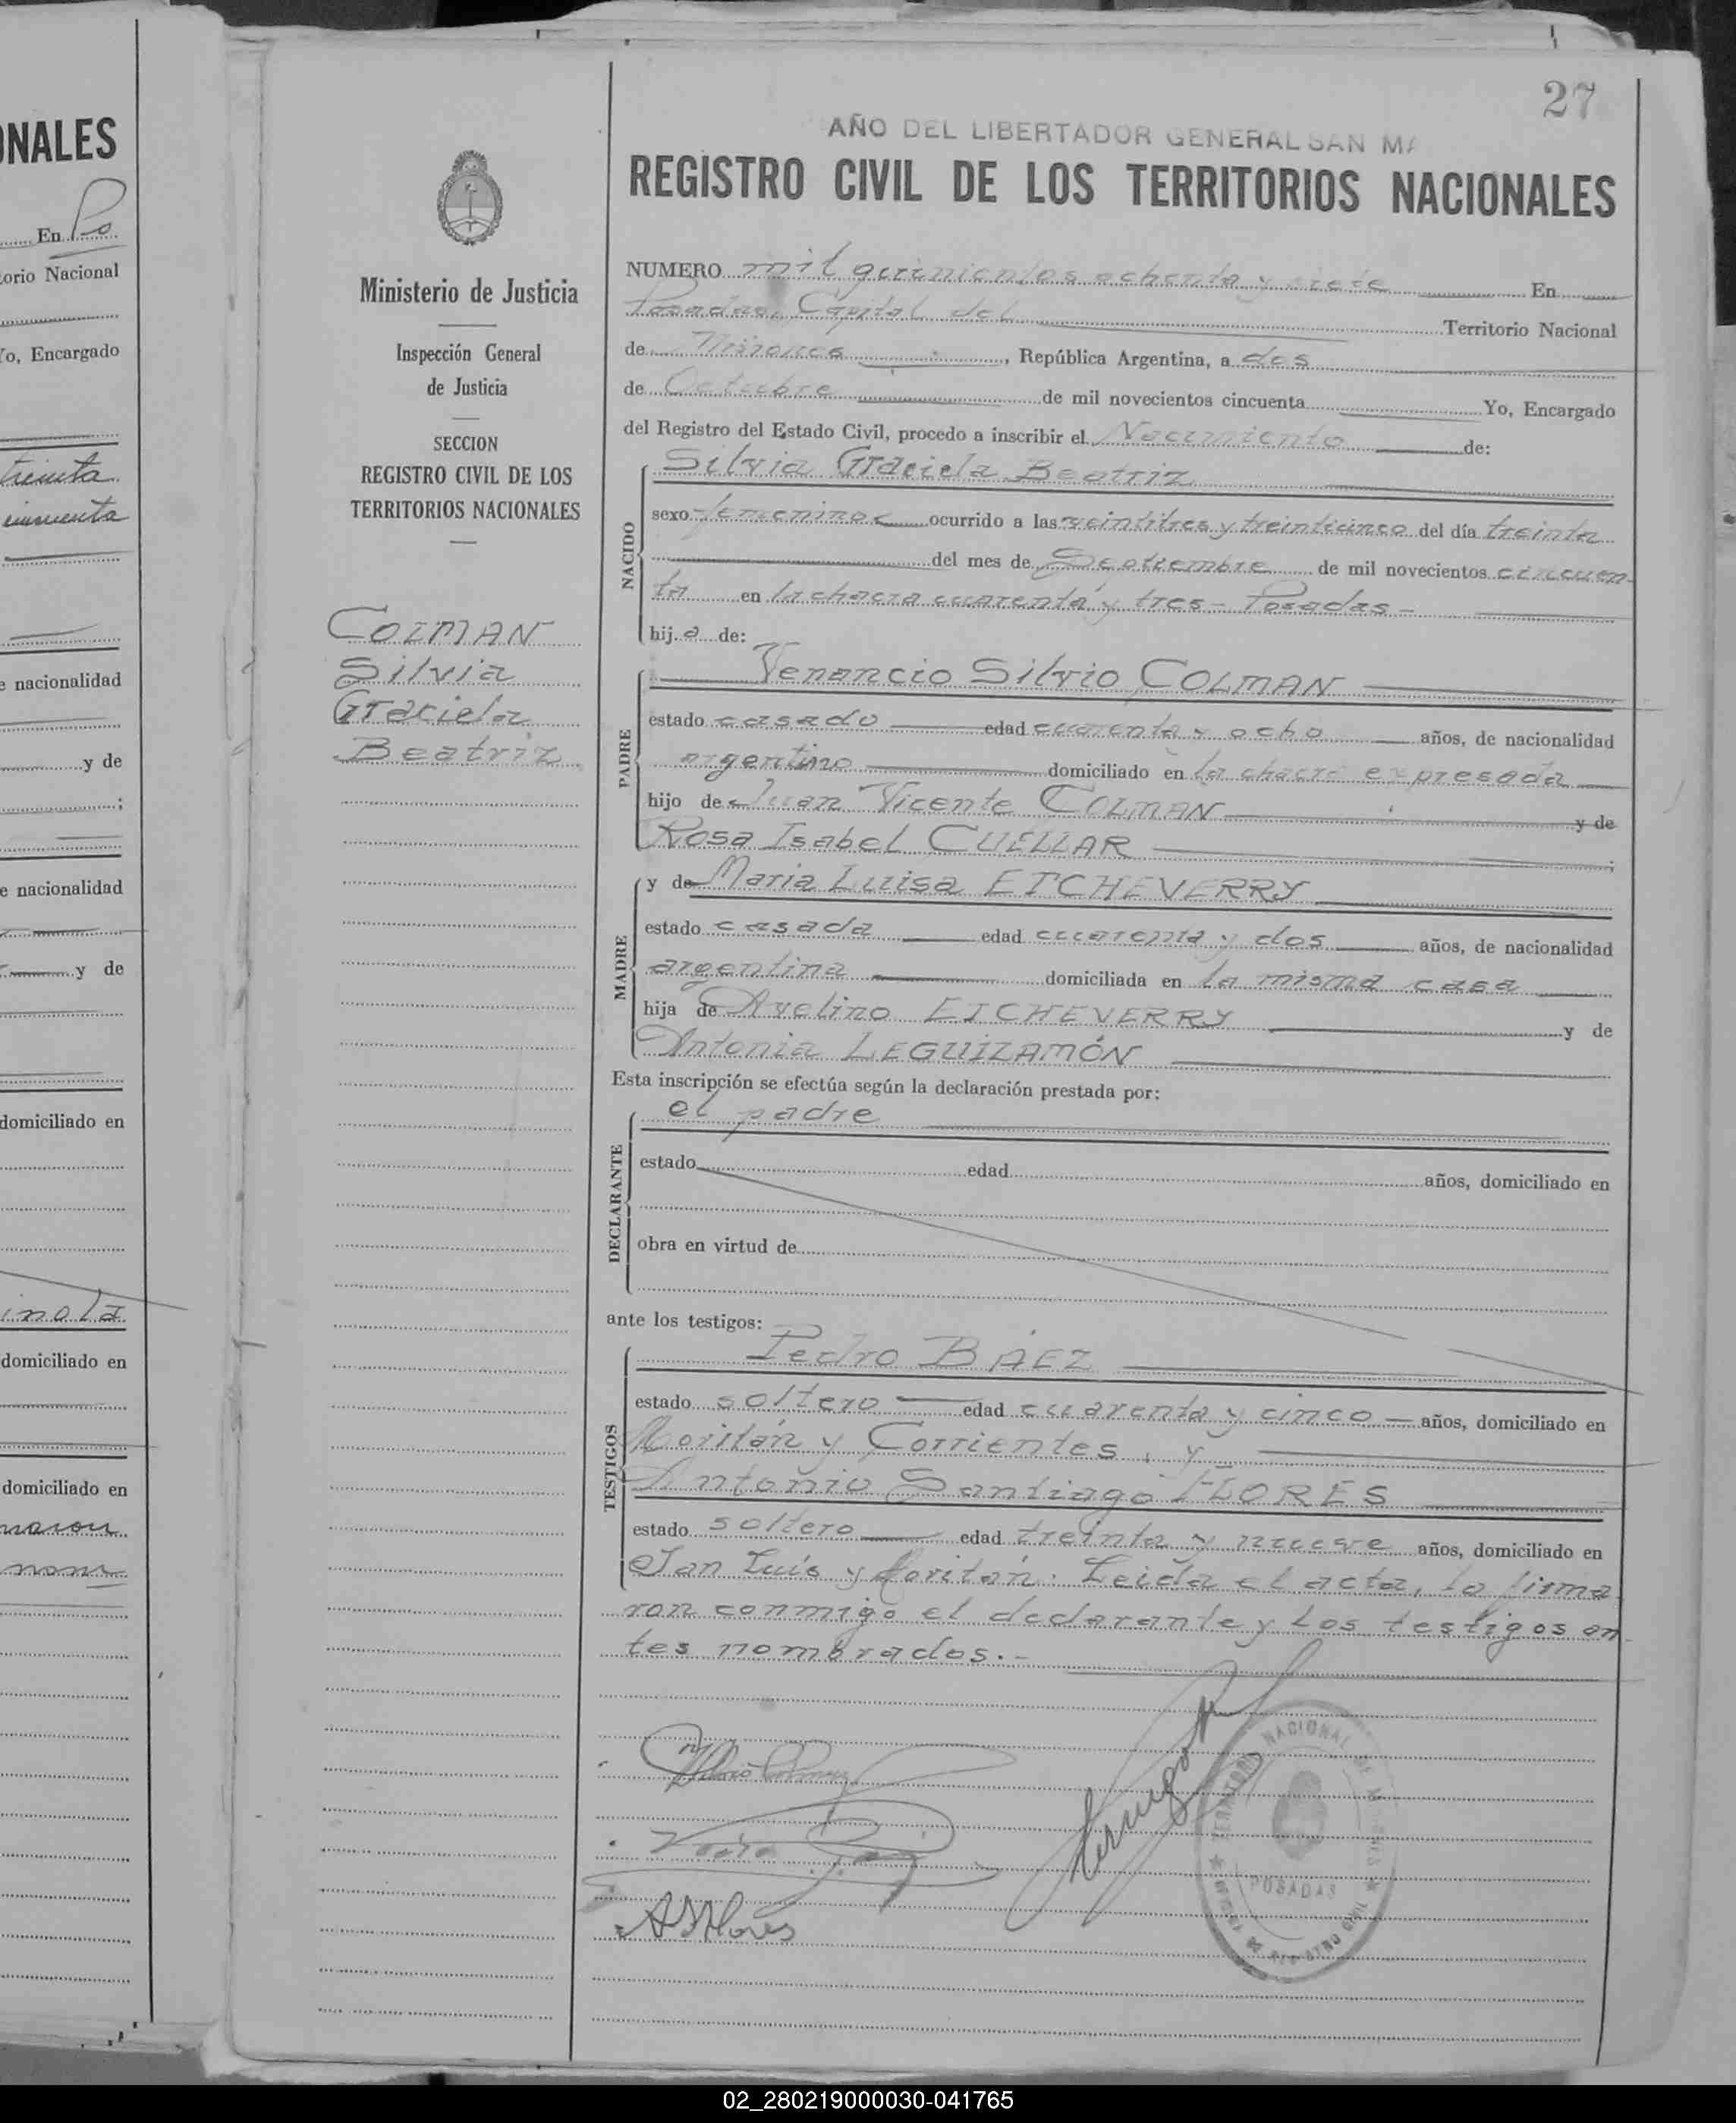 ONALES
En Po
torio Nacional
Yo, Encargado
treinta
cincuenta
e nacionalidad
y de
;
e nacionalidad
y de
domiciliado en
inola
domiciliado en
domiciliado en
maron
Ministerio de Justicia
Inspección General
de Justicia
SECCION
REGISTRO CIVIL DE LOS
TERRITORIOS NACIONALES
COLMAN
Silvia
Graciela
Beatriz
27
AÑO DEL LIBERTADOR GENERAL SAN MA
REGISTRO CIVIL DE LOS TERRITORIOS NACIONALES
NUMERO mil quinientos ochenta y siete En
Posadas, Capital del Territorio Nacional
de Misiones, República Argentina, a dos
de Octubre de mil novecientos cincuenta Yo, Encargado
del Registro del Estado Civil, procedo a inscribir el Nacimiento de:
Silvia Graciela Beatriz
NACIDO
sexo femenino ocurrido a las veintitres y treinticinco del día treinta
del mes de Septiembre de mil novecientos cincuen-
ta en la chacra cuarenta y tres - Posadas -
hij.a de:
PADRE
Venancio Silvio COLMAN
estado casado edad cuarenta y ocho años, de nacionalidad
argentino domiciliado en la chacra expresada
hijo de Juan Vicente COLMAN y de
Rosa Isabel CUELLAR ;
MADRE
y de Maria Luisa ETCHEVERRY
estado casada edad cuarenta y dos años, de nacionalidad
argentina domiciliada en la misma casa
hija de Avelino ETCHEVERRY y de
Antonia LEGUIZAMÓN
Esta inscripción se efectúa según la declaración prestada por:
DECLARANTE
el padre
estado edad años, domiciliado en
obra en virtud de
ante los testigos:
TESTIGOS
Pedro BÁEZ
estado soltero edad cuarenta y cinco años, domiciliado en
Moritán y Corrientes, y
Antonio Santiago FLORES
estado soltero edad treinta y nueve años, domiciliado en
San Luis y Moritán. Leida el acta, la firma
ron conmigo el declarante y los testigos an-
tes nombrados.-
ASFlores
TERRITORIO NACIONAL DE MISIONES
POSADAS
OFICINA DE REGISTRO CIVIL
02_280219000030-041765